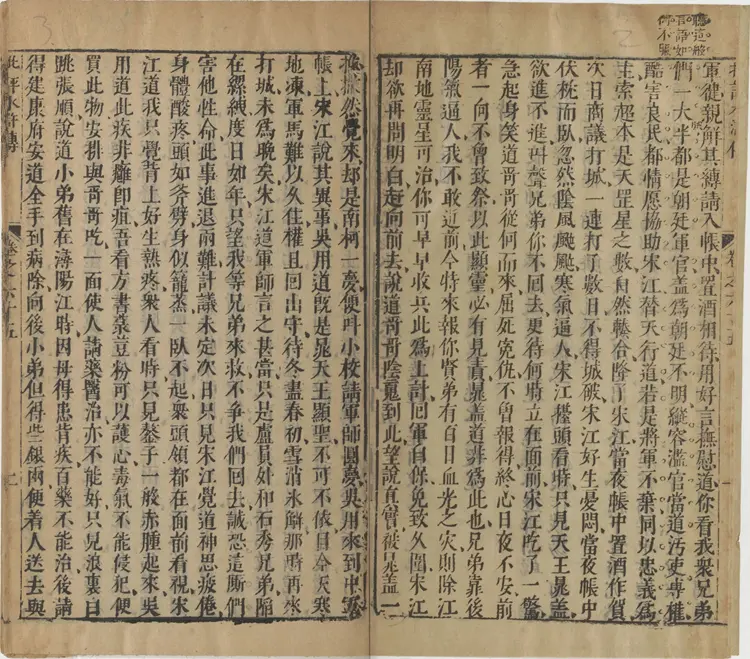 軍健親解其縛請入帳中置酒相待用好言撫慰道你看我衆兄弟
們一大半都是朝廷軍官蓋爲朝廷不明縱容濫官當道污吏專權
酷害良民都情愿協助宋江替天行道若是將軍不棄同以忠義爲
主索超本是天罡星之數自然輳合降了宋江當夜帳中置酒作賀
次日商議打城一連打了數日不得城破宋江好生憂悶當夜帳中
伏枕而臥忽然陰風颯颯寒氣逼人宋江擡頭看時只見天王晁蓋
欲進不進叫聲兄弟你不回去更待何時立在面前宋江吃了一驚
急起身笑道哥哥從何而來屈死冤仇不曾報得終心日夜不安前
者一向不曾致祭以此顯靈必有見責晁蓋道非爲此也兄弟靠後
陽氣逼人我不敢近前今特來報你賢弟有百日血光之灾則除江
南地靈星可治你可早早收兵此爲上計回軍自保免致久圍宋江
却欲再問明白赶向前去說道哥哥陰魂到此望說眞實被晁蓋一
推撇然覺來却是南柯一夢便叫小校請軍師圓夢吳用來到中軍
帳上宋江說其異事吳用道旣是晁天王顯聖不可不依目今天寒
地凍軍馬難以久住權且回山守待冬盡春初雪消氷解那時再來
打城未爲晚矣宋江道軍師言之甚當只是盧員外和石秀兄弟陷
在縲絏度日如年只望我等兄弟來救不爭我們回去誠恐這厮們
害他性命此事進退兩難計議未定次日只見宋江覺道神思疲倦
身體酸疼頭如斧劈身似籠蒸一臥不起衆頭領都在面前看視宋
江道我只覺背上好生熱疼衆人看時只見鏊子一般赤腫起來吳
用道此疾非癰卽疽吾看方書菉豆粉可以護心毒氣不能侵犯便
買此物安排與哥哥吃一面使人請藥醫治亦不能好只見浪裏白
跳張順說道小弟舊在潯陽江時因母得患背疾百藥不能治後請
得建康府安道全手到病除向後小弟但得些銀兩便着人送去與
批評水滸傳
卷之六十五